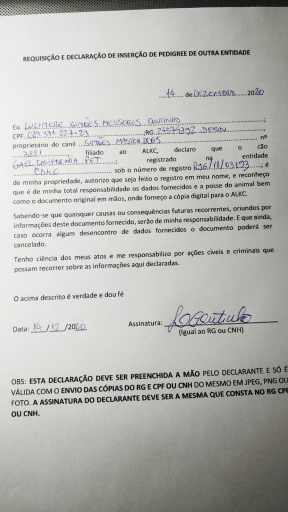 REQUISIÇÃO E DECLARAÇÃO DE INSERÇÃO DE PEDIGREE DE OUTRA ENTIDADE
14 de DEZEMBRO 2020
Eu SIMÕES
CPF. RG.
proprietário do canil SIMÕES nº
filiado ao ALKC, declaro que o cão
PET registrado na entidade
sob o número de registro é
de minha propriedade, autorizo que seja feito o registro em meu nome, e reconheço
que é de minha total responsabilidade os dados fornecidos e a posse do animal bem
como o documento original em mãos, onde forneço a cópia digital para o ALKC.
Sabendo-se que quaisquer causas ou consequências futuras recorrentes, oriundos por
informações deste documento fornecido, serão de minha responsabilidade. E que ainda,
caso ocorra algum desencontro de dados fornecidos o documento poderá ser
cancelado.
Tenho ciência dos meus atos e me responsabilizo por ações cíveis e criminais que
possam recorrer sobre as informações aqui declaradas.
O acima descrito é verdade e dou fé
Data: 14/12/2020 Assinatura:
(Igual ao RG ou CNH)
OBS: ESTA DECLARAÇÃO DEVE SER PREENCHIDA A MÃO PELO DECLARANTE E SÓ É
VÁLIDA COM O ENVIO DAS CÓPIAS DO RG E CPF OU CNH DO MESMO EM JPEG, PNG OU
FOTO. A ASSINATURA DO DECLARANTE DEVE SER A MESMA QUE CONSTA NO RG CPF
OU CNH.